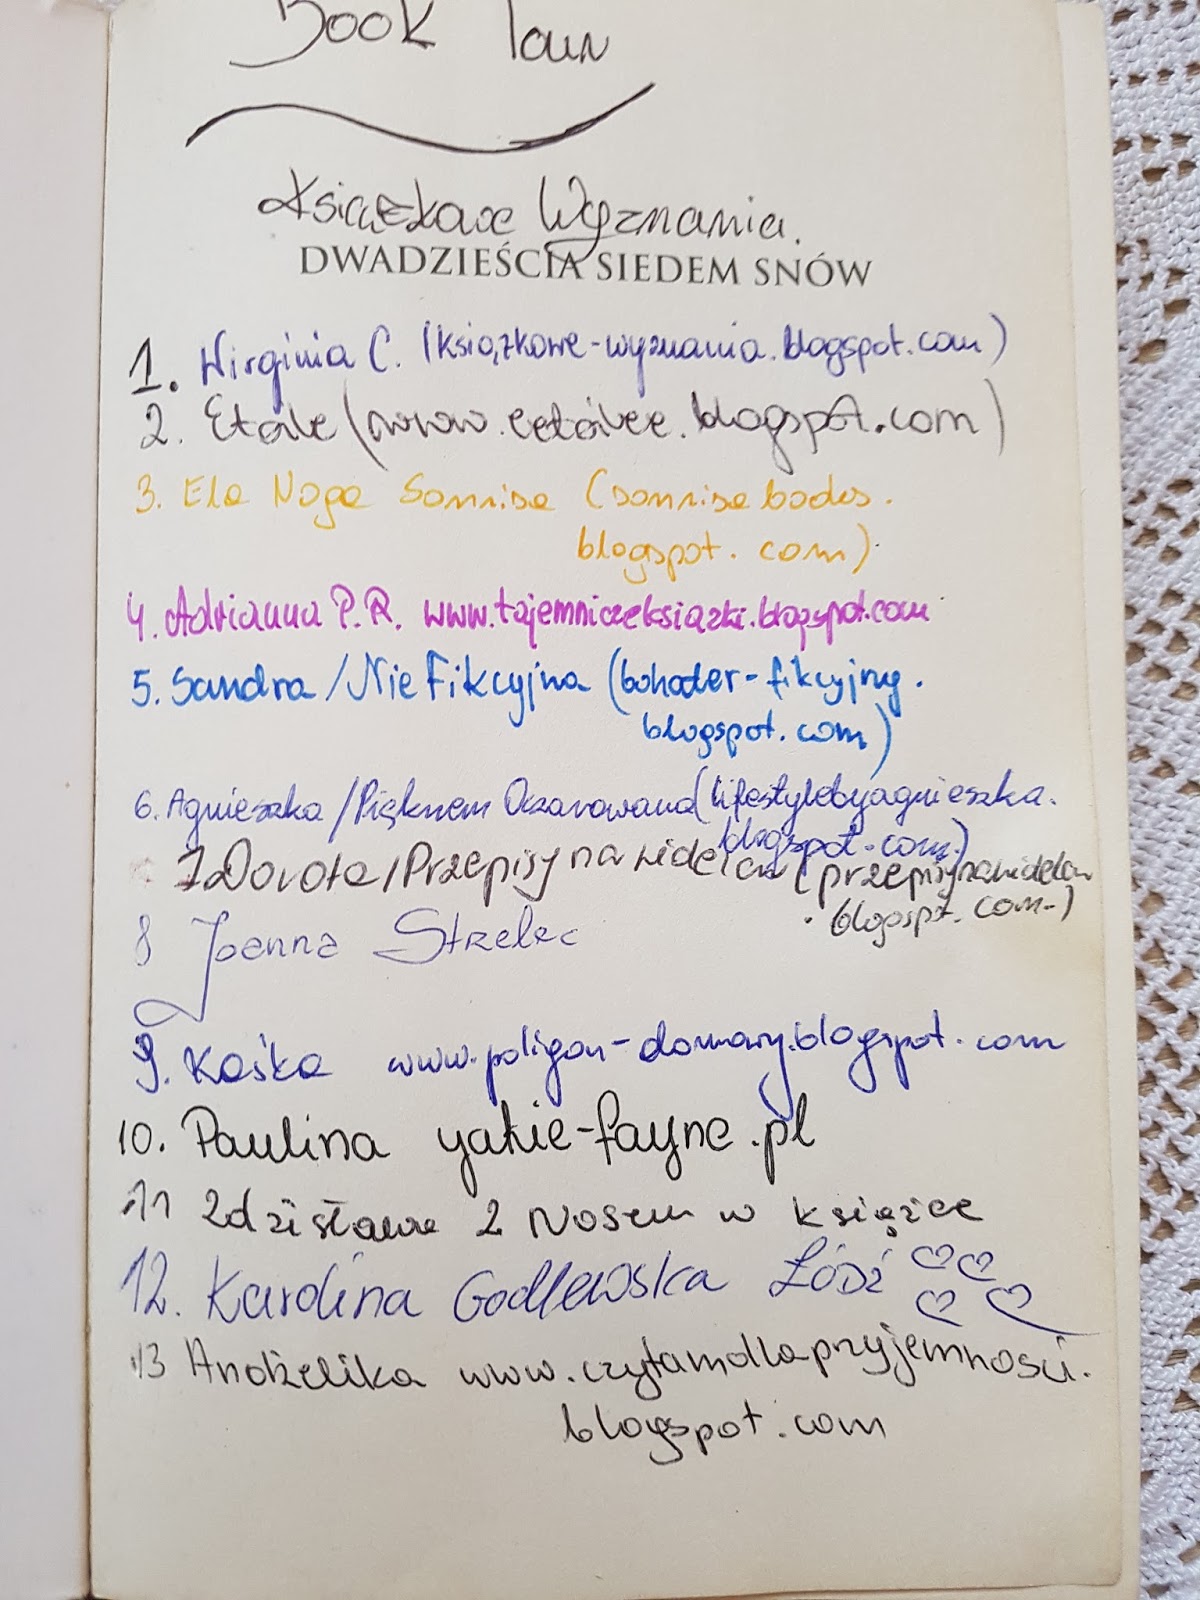 Book Tour
Książkowe Wyznania.
DWADZIEŚCIA SIEDEM SNÓW
1. Wirginia C. (książkowe-wyznania.blogspot.com)
2. Etoile (www.
blogspot.com)
3. Ela Noga Sonrisa (sonrisabooks.
blogspot.com)
4. Adrianna P.R. www.tajemniczeksiazki.blogspot.com
5. Sandra / NieFikcyjna (bohater-fikcyjny.
blogspot.com)
6. Agnieszka / Pięknem Oczarowana (lifestylebyagnieszka.
blogspot.com)
7 Dorota / Przepisy na widelcu (przepisynawidelcu
.blogospt.com.)
8 Joanna Strzelec
9. Kaśka www.poligon-domowy.blogspot.com
10. Paulina yakie-fayne.pl
11 Zdzisława Z Nosem w książce
12. Karolina Godlewska ŁÓDŹ ♡♡♡♡
13 Andżelika www.czytamdlaprzyjemnosci.
blogspot.com